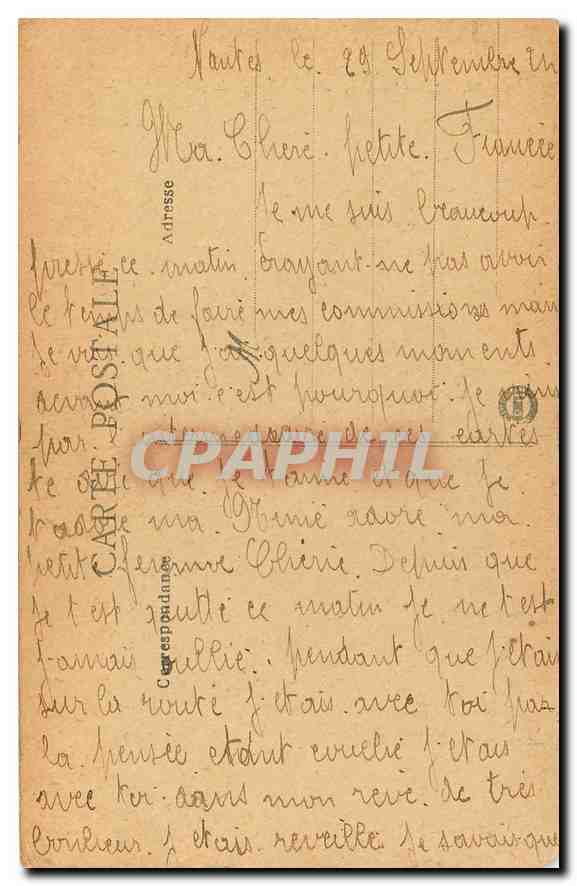 Nantes le 29 Septembre
Ma Cheré petite Fiancée
Je me suis beaucoup
presse ce matin Croyant ne pas avoir
le temps de faire mes commissions mais
Je vois que J'ai quelques moments
devant moi c'est pourquoi Je
par de ces cartes
te dire que Je t'aime et que Je
t'adore ma Mimie adore ma
petite femme Chérie. Depuis que
Je t'est quitté ce matin Je ne t'est
Jamais oublié. pendant que J'etais
sur la route J'etais avec toi pa-
la pensée etant couché J'etais
avec toi dans mon reve. de tres
bonheur. J'etais reveillé Je savais que
CARTE POSTALE
Correspondance
Adresse
M
CPAPHIL